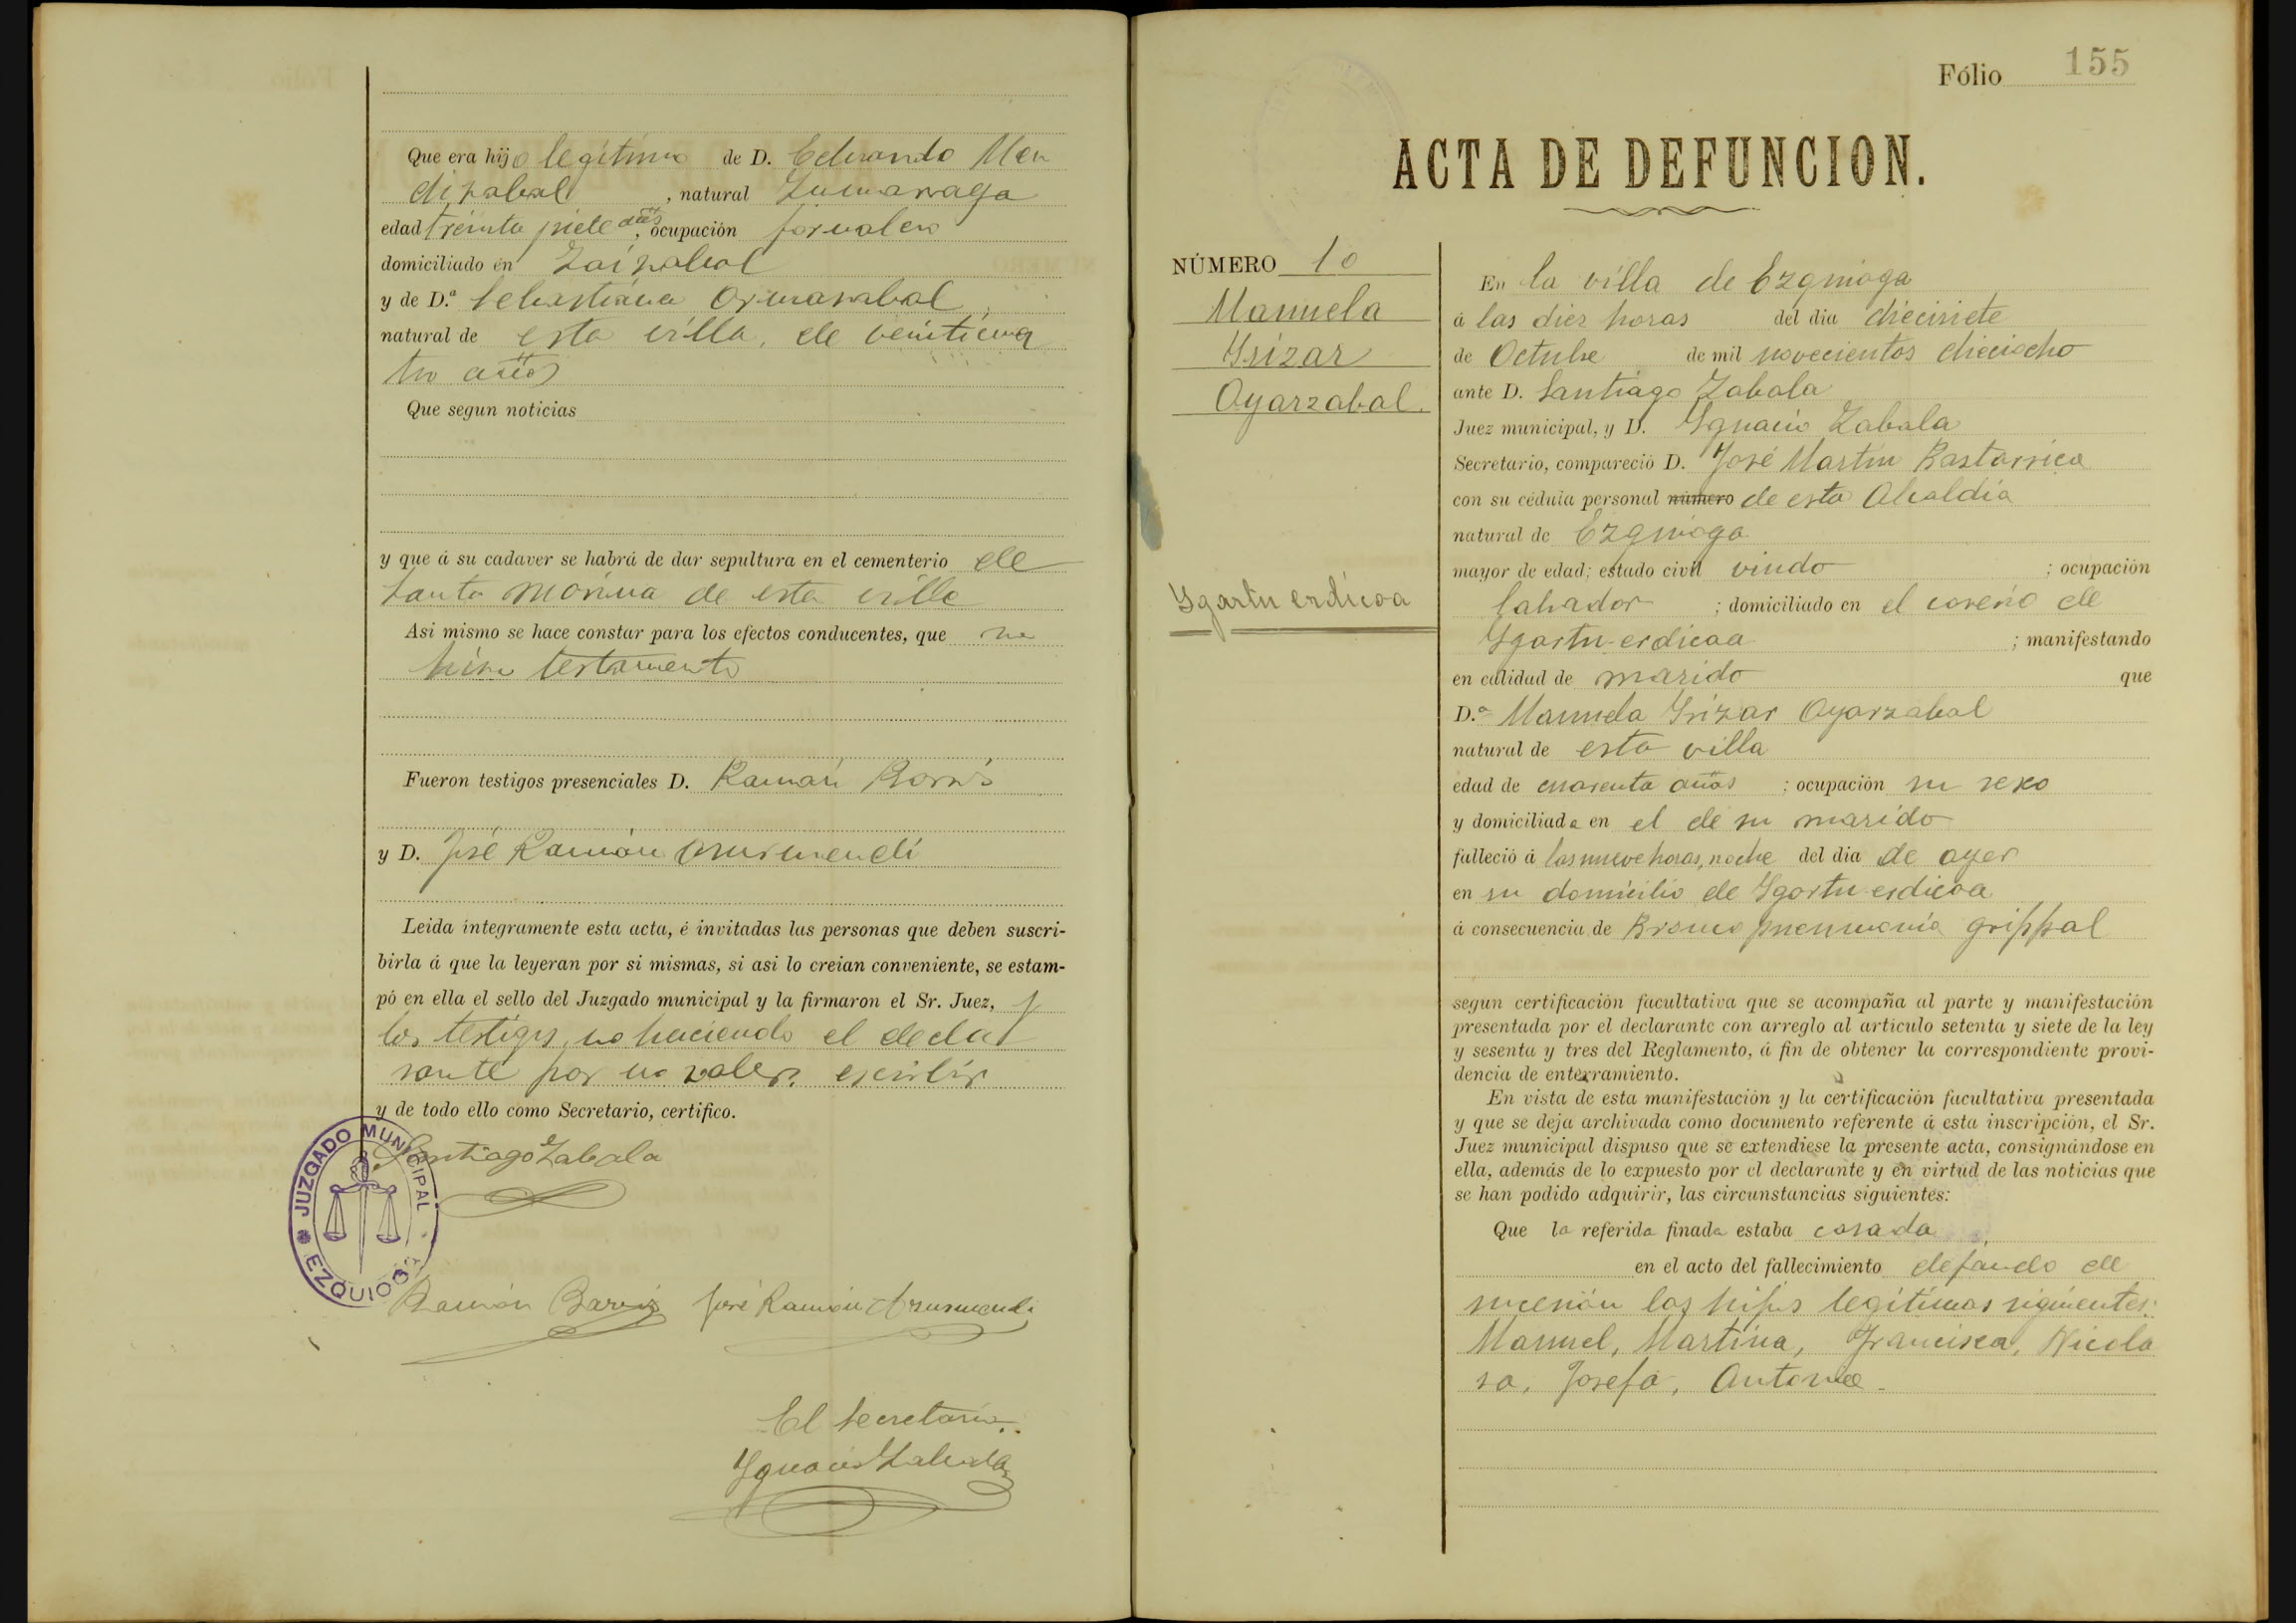 Que era hijo legítimo de D. Eduardo Men
dizabal , natural Zumarraga
edad treinta siete años, ocupación jornalero
domiciliado en Zaizabal
y de D.ª Sebastiana Ormazabal
natural de esta villa, de veinticua
tro años
Que segun noticias
y que á su cadaver se habrá de dar sepultura en el cementerio de
Santa Marina de esta villa
Asi mismo se hace constar para los efectos conducentes, que no
hizo testamento
Fueron testigos presenciales D. Ramón
y D. José Ramón Azurmendi
Leida integramente esta acta, é invitadas las personas que deben suscri-
birla á que la leyeran por si mismas, si asi lo creian conveniente, se estam-
pó en ella el sello del Juzgado municipal y la firmaron el Sr. Juez, y
los testigos, no haciendo el decla
rante por no saber escribir
y de todo ello como Secretario, certifico.
Santiago Zabala
JUZGADO MUNICIPAL
EZQUIOGA
Ramón José Ramón Azurmendi
El Secretario.
Ygnacio Zabala
Fólio 155
ACTA DE DEFUNCION.
NÚMERO 10
Manuela
Yrizar
Oyarzabal.
Ygartu erdicoa
En la villa de Ezquioga
á las diez horas del dia diecisiete
de Octubre de mil novecientos dieciocho
ante D. Santiago Zabala
Juez municipal, y D. Ygnacio Zabala
Secretario, compareció D. José Martín Bastarrica
con su cédula personal número de esta Alcaldía
natural de Ezquioga
mayor de edad; estado civil viudo ; ocupación
labrador ; domiciliado en el caserío de
Ygartu-erdicoa ; manifestando
en calidad de marido que
D.ª Manuela Yrizar Oyarzabal
natural de esta villa
edad de cuarenta años ; ocupación su sexo
y domiciliada en el de su marido
falleció á las nueve horas, noche del dia de ayer
en su domicilio de Ygartu-erdicoa
á consecuencia de Bronco pneumonía grippal
segun certificación facultativa que se acompaña al parte y manifestación
presentada por el declarante con arreglo al articulo setenta y siete de la ley
y sesenta y tres del Reglamento, á fin de obtener la correspondiente provi-
dencia de enterramiento.
En vista de esta manifestación y la certificación facultativa presentada
y que se deja archivada como documento referente á esta inscripción, el Sr.
Juez municipal dispuso que se extendiese la presente acta, consignándose en
ella, además de lo expuesto por el declarante y en virtud de las noticias que
se han podido adquirir, las circunstancias siguientes:
Que la referida finada estaba casada
en el acto del fallecimiento dejando de
sucesión los hijos legítimos siguientes:
Manuel, Martina, Francisca, Nicola
sa, Josefa, Antonia.